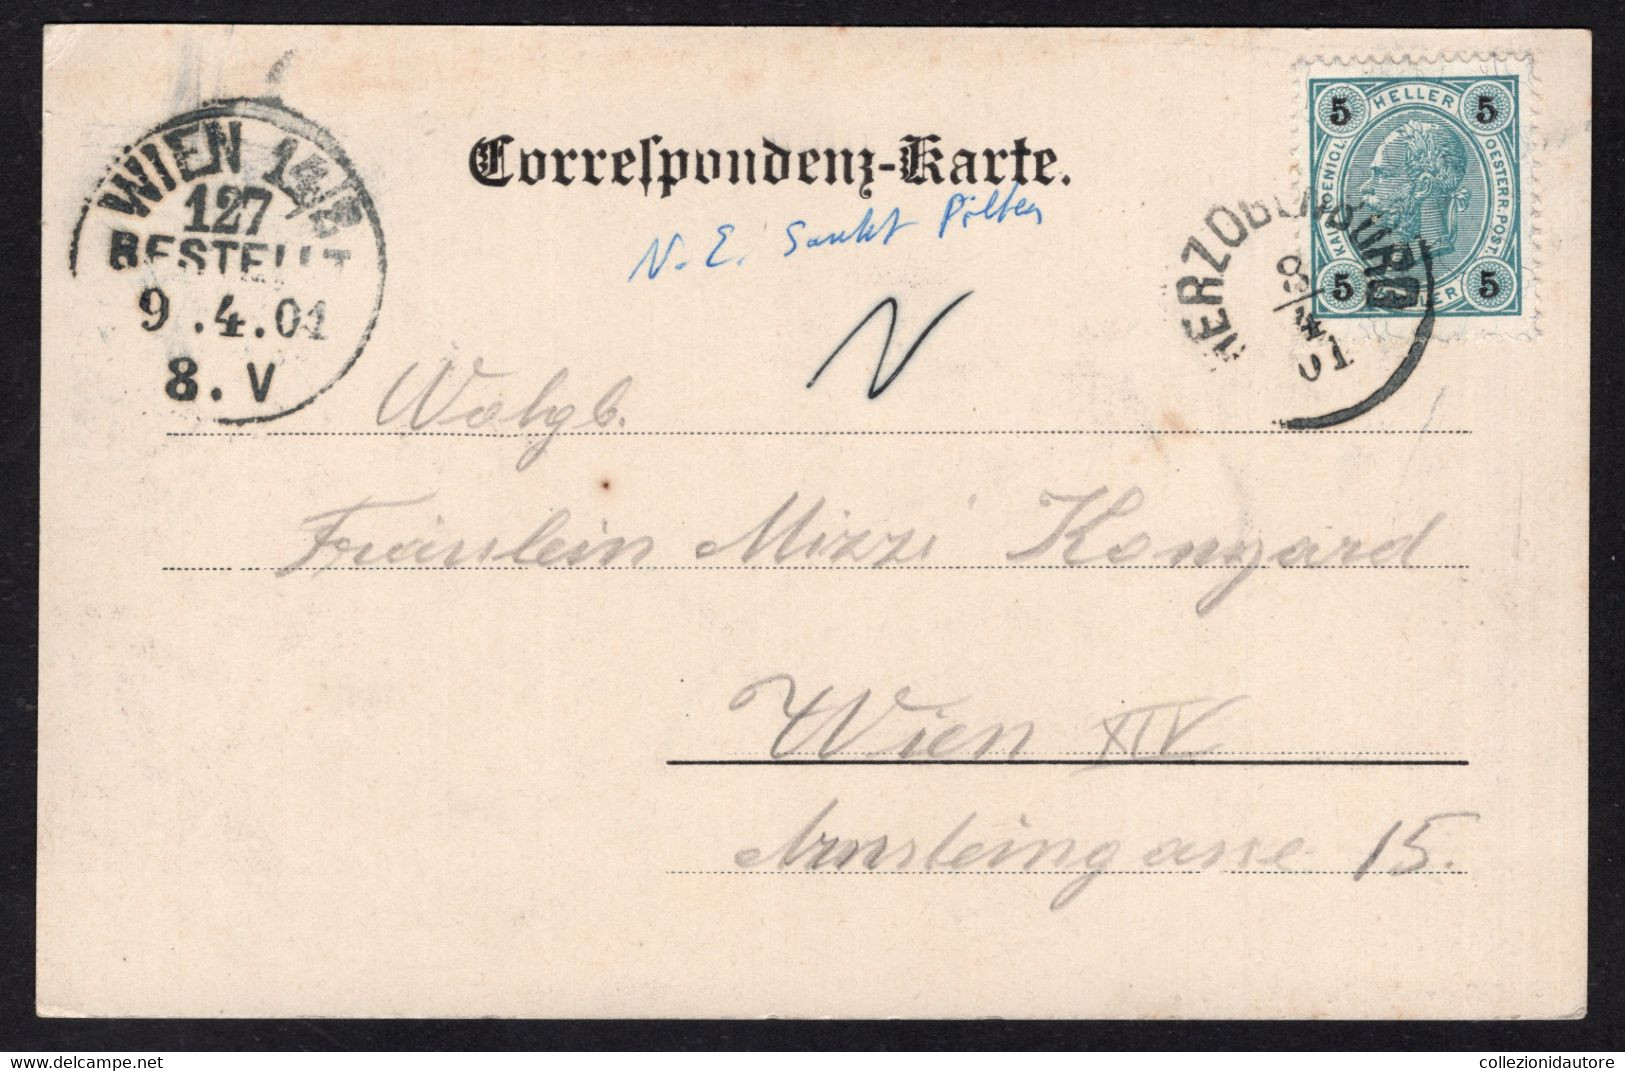 Correspondenz-Karte.
N. E. Sankt Pölten
N
WIEN 14/2
127
BESTELLT
9.4.01
8. V
5 HELLER 5
KAIS. KOENIGL.
OESTERR. POST.
5 HELLER 5
HERZOGENBURG
8
4
01
Wolgb.
Fräulein Mizzi Kongard
Wien XIV
Arnsteingasse 15.
collezionidautore